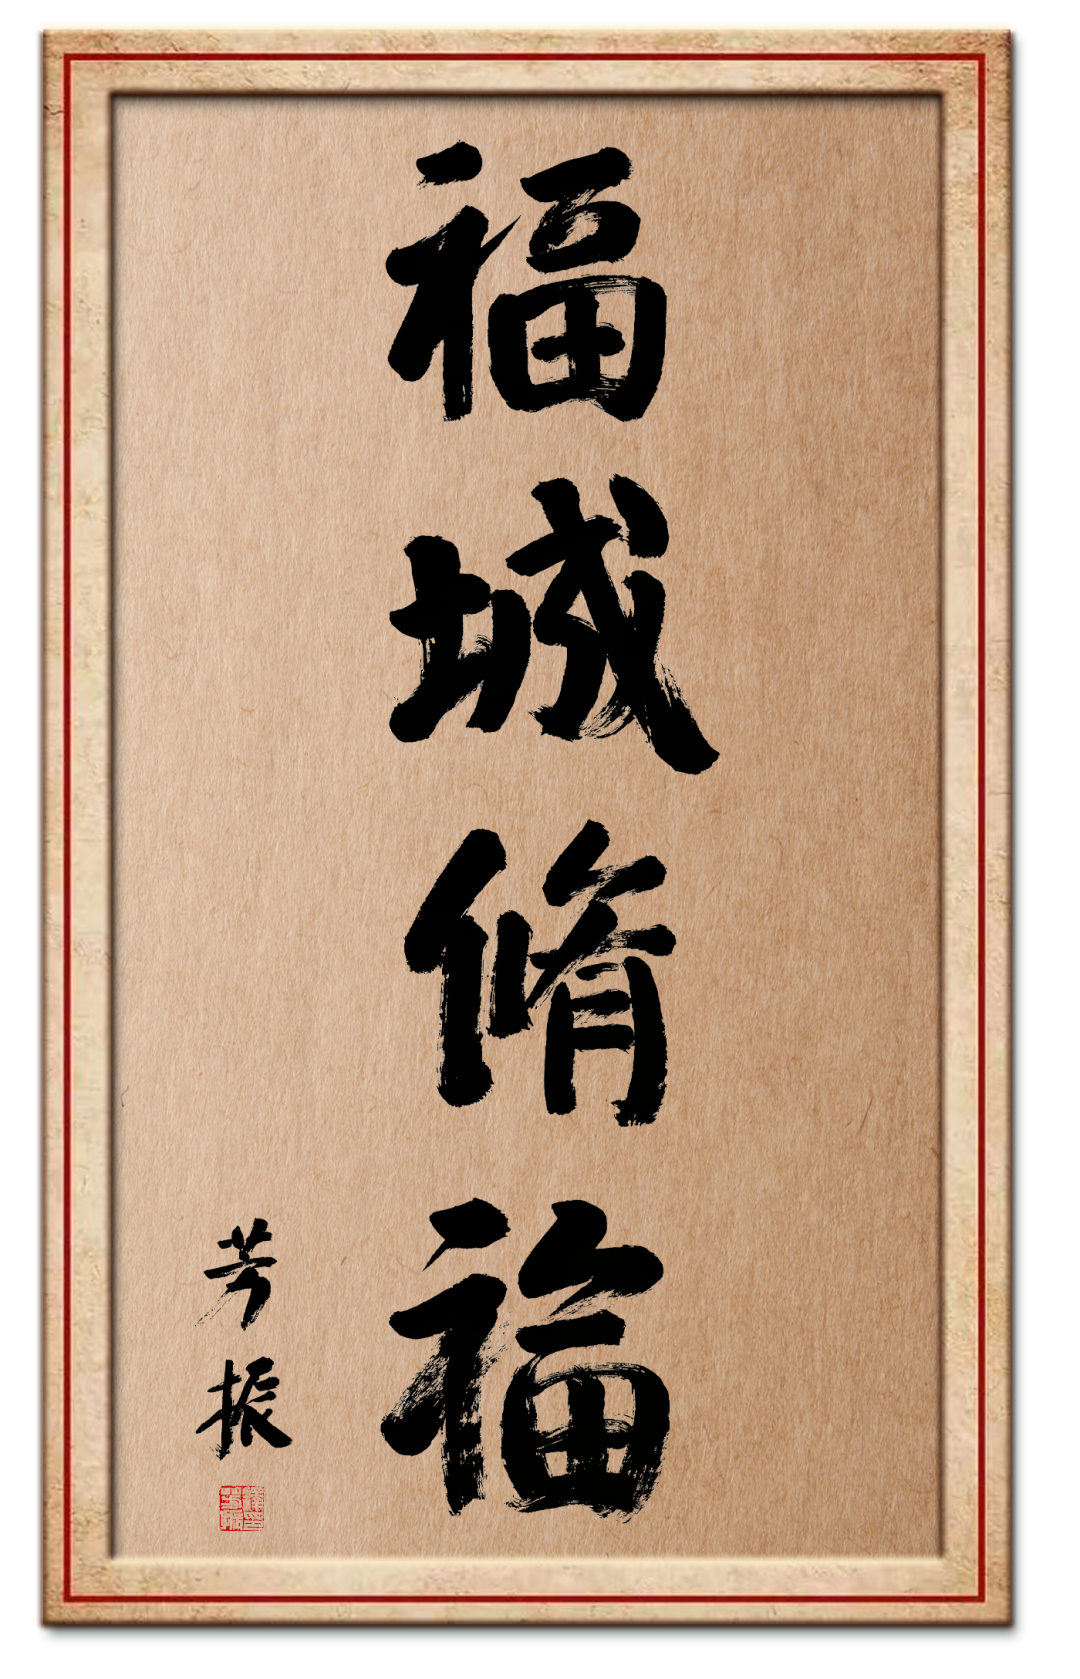 福城脩福
芳振